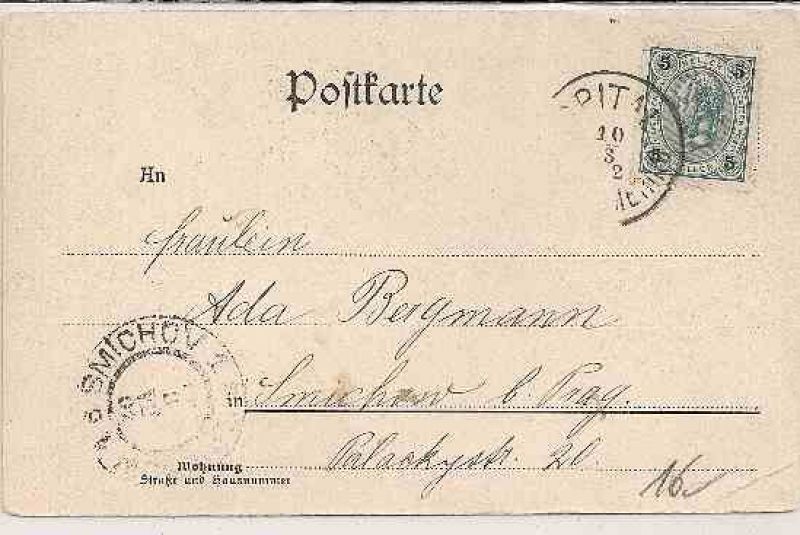 Postkarte
5 5
5 5
10
An
Fräulein
Ada Bergmann
SMICHOV 1
in Smichow b. Prag.
Wohnung
Straße und Hausnummer
Palackystr. 20.
16